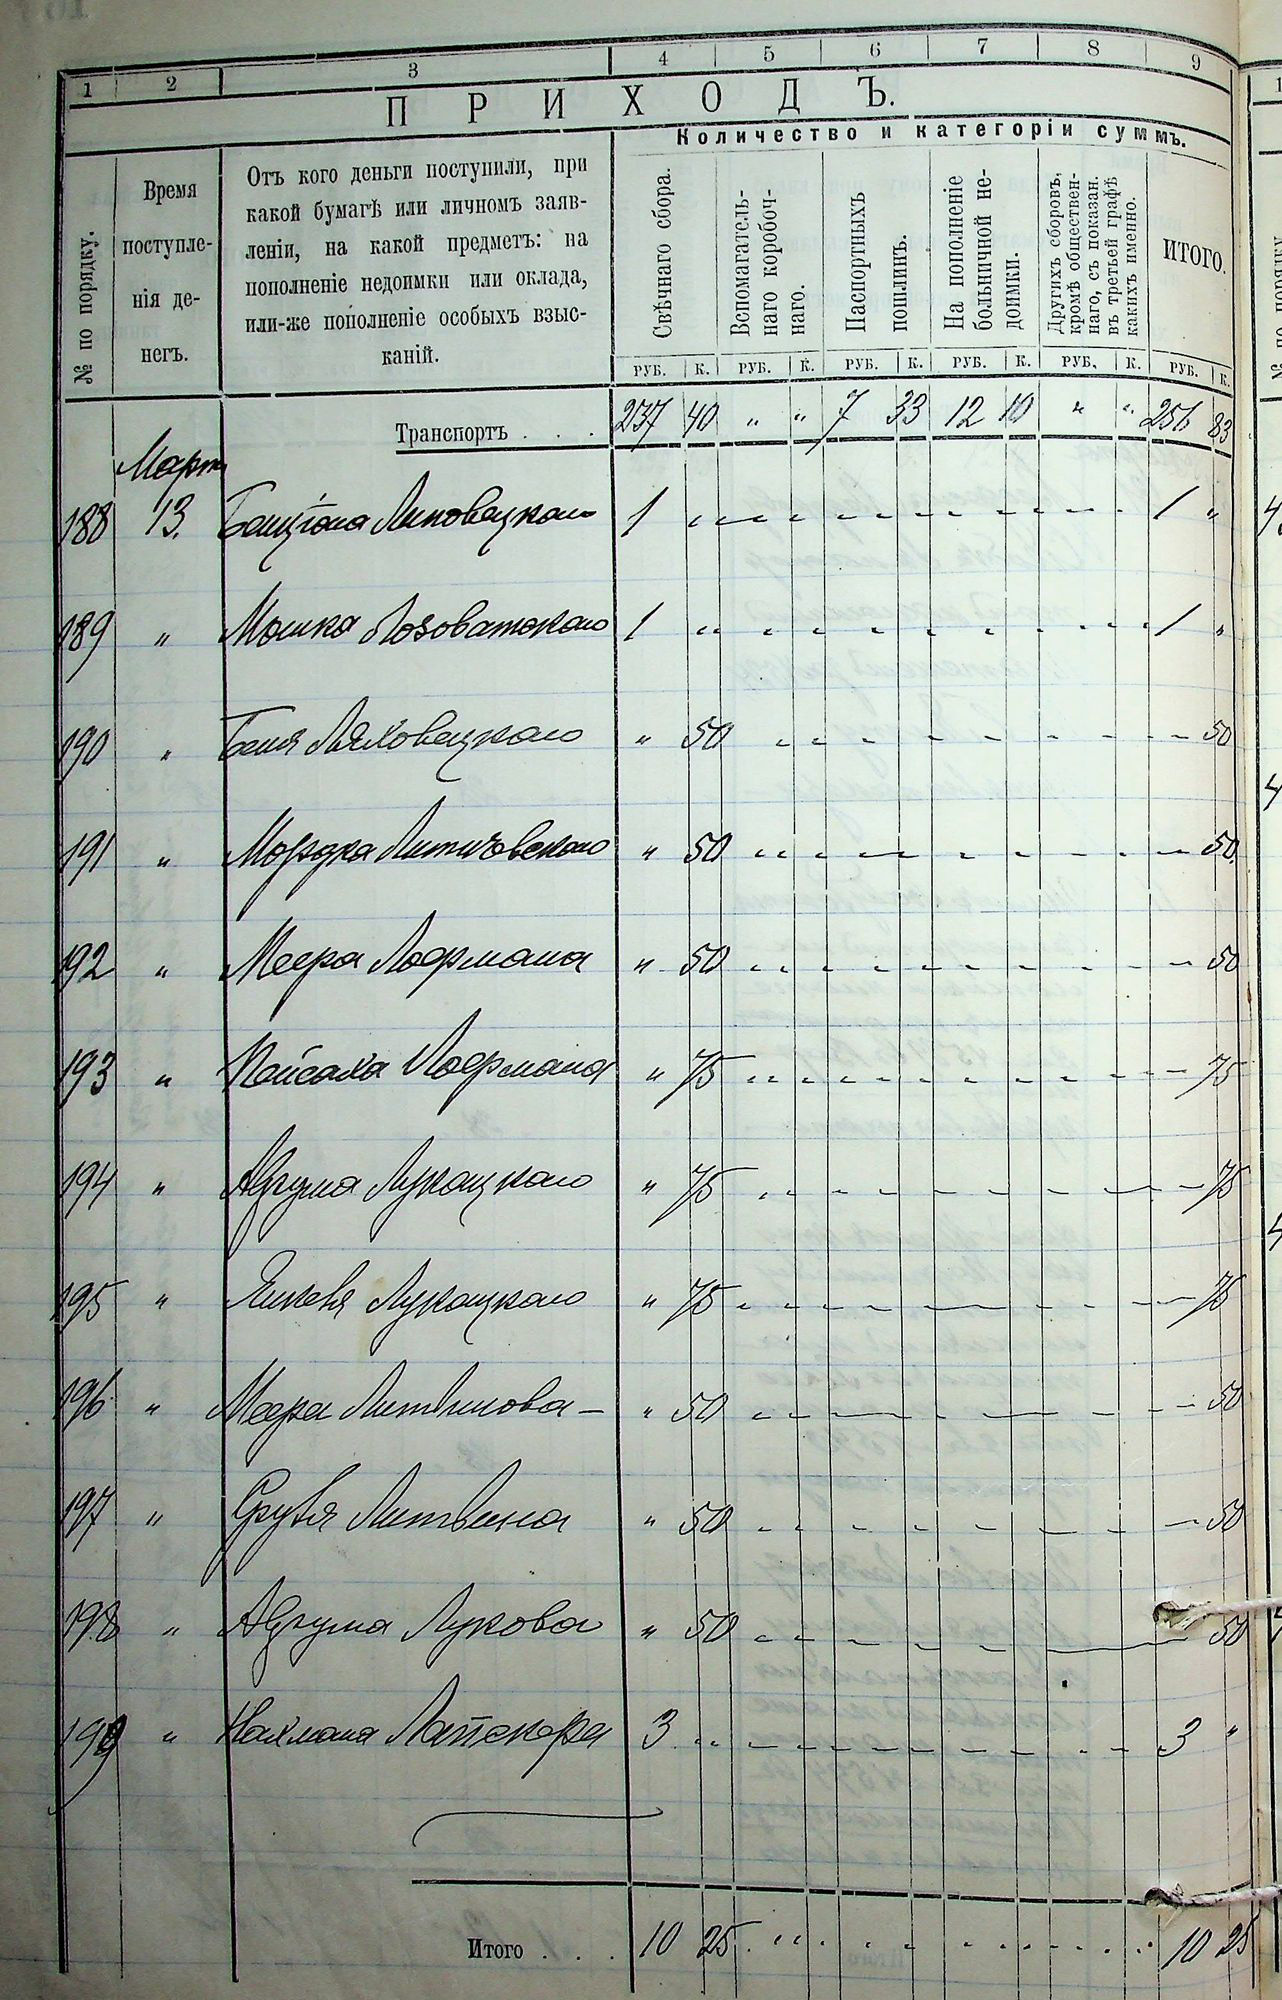 1 2 3 4 5 6 7 8 9
ПРИХОДЪ.
Количество и категоріи суммъ.
№ по порядку.
Время
поступле-
нія де-
негъ.
Отъ кого деньги поступили, при
какой бумагѣ или личномъ заяв-
леніи, на какой предметъ: на
пополненіе недоимки или оклада,
или-же пополненіе особыхъ взыс-
каній.
Свѣчнаго сбора.
Вспомагатель-
наго коробоч-
наго.
Паспортныхъ
пошлинъ.
На пополненіе
больничной не-
доимки.
Другихъ сборовъ,
кромѣ обществен-
наго, съ показан.
въ третьей графѣ
какихъ именно.
ИТОГО.
РУБ. К. РУБ. К. РУБ. К. РУБ. К. РУБ. К. РУБ. К.
Транспортъ . . . 237 40 " " 7 33 12 10 " " 256 83
Март
188 13. Липовецкаго 1 " 1 "
189 " Мошка Лозоватскаго 1 " 1 "
190 " Беня Ляховецкаго " 50 50
191 " Мордка Литичовскаго " 50 50
192 " Меера Лофмана " 50 50
193 " Пейсаха Лофмана " 75 75
194 " Лукацкаго " 75 75
195 " Янкеля Лукацкаго " 75 75
196 " Меера Литвинова " 50 50
197 " Литвина " 50 50
198 " Лукова " 50 50
199 " Нахмана 3 " 3 "
Итого . . . 10 25 10 25